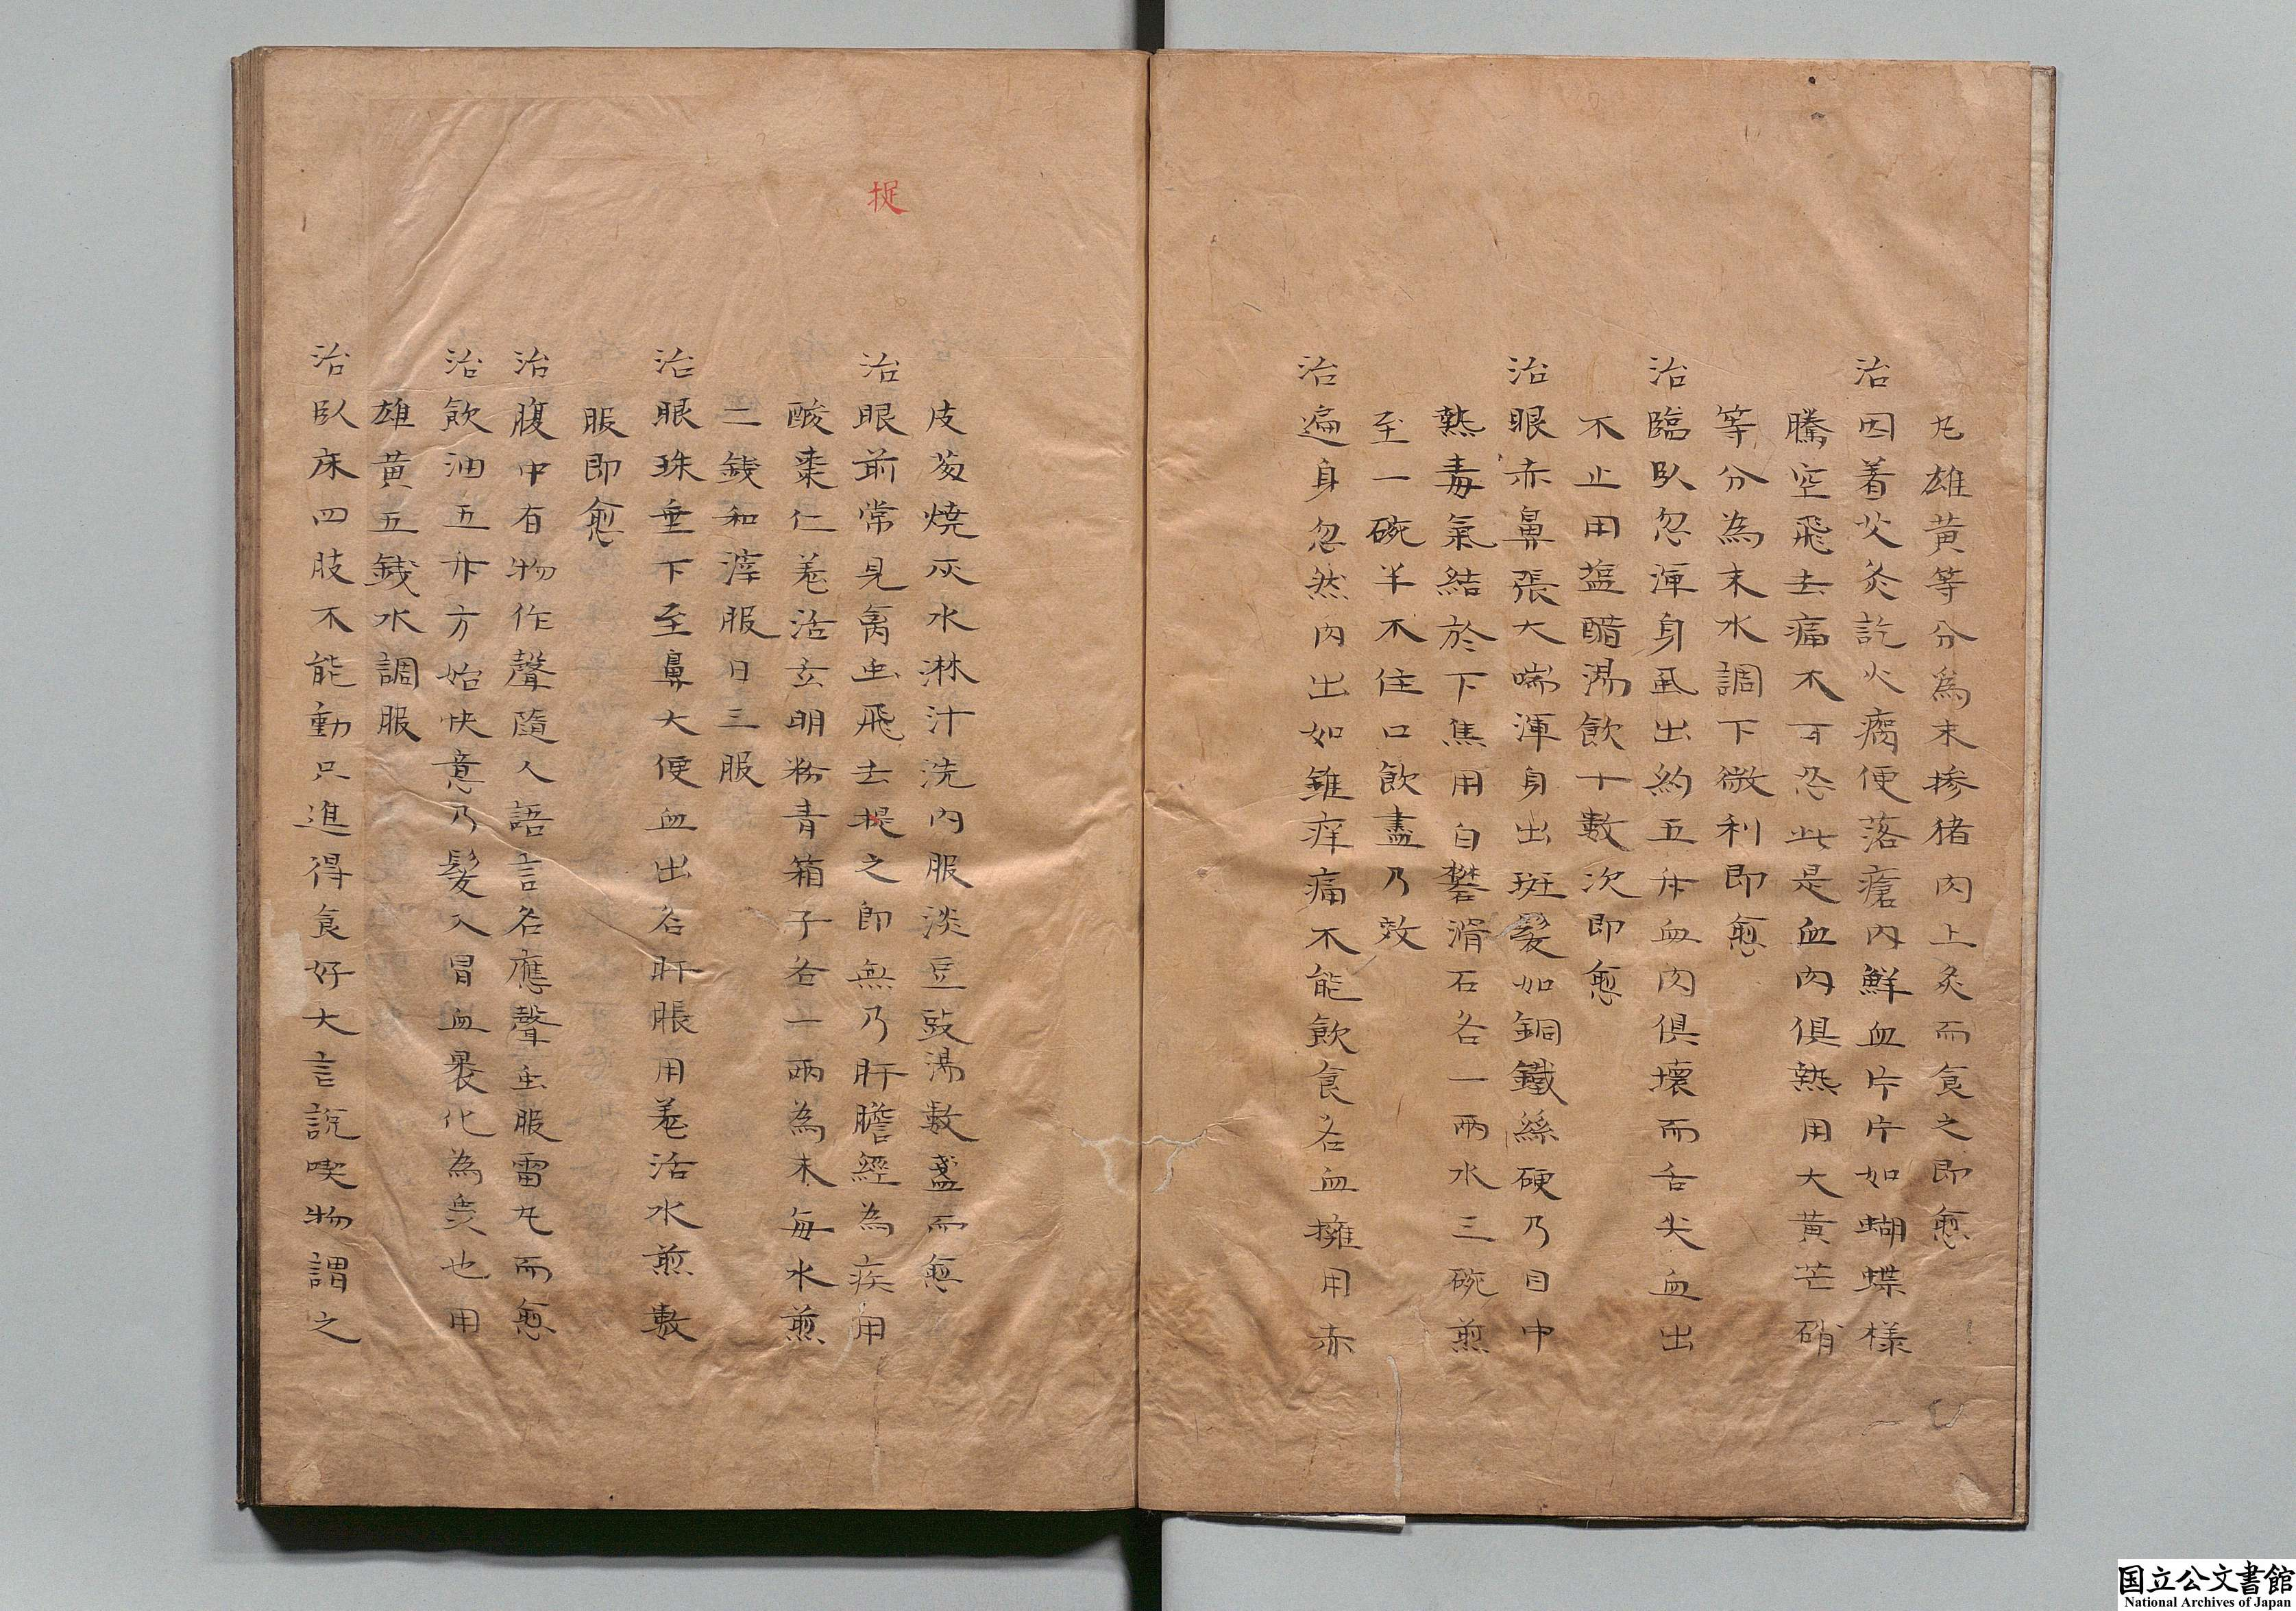 丸雄黄等分爲末掺猪肉上炙而食之即愈
治因着艾灸訖火痂便落瘡内鮮血片片如蝴蝶樣
騰空飛去痛不可忍此是血肉俱熱用大黄芒硝
等分為末水調下微利即愈
治臨臥忽渾身虱出約五升血肉俱壊而舌尖血出
不止用塩醋湯飲十數次即愈
治眼赤鼻張大喘渾身出斑髮如銅鐵絲硬乃目中
熱毒氣結於下焦用白礬滑石各一兩水三碗煎
至一碗半不住口飲盡乃效
治遍身忽然肉出如錐痒痛不能飲食名血擁用赤
皮葱燒灰水淋汁洗内服淡豆豉湯數盞而愈
捉
治眼前常見禽虫飛去提之即無乃肝膽經為疾用
酸棗仁羗活玄明粉青箱子各一兩為末每水煎
二錢和滓服日三服
治眼珠垂下至鼻大便血出名肝脹用羗活水煎數
服即愈
治腹中有物作聲隨人語言名應聲虫服雷丸而愈
治飲油五升方始快意乃髮入胃血裹化為虫也用
雄黄五錢水調服
治臥床四肢不能動只進得食好大言說喫物謂之
国立公文書館
National Archives of Japan